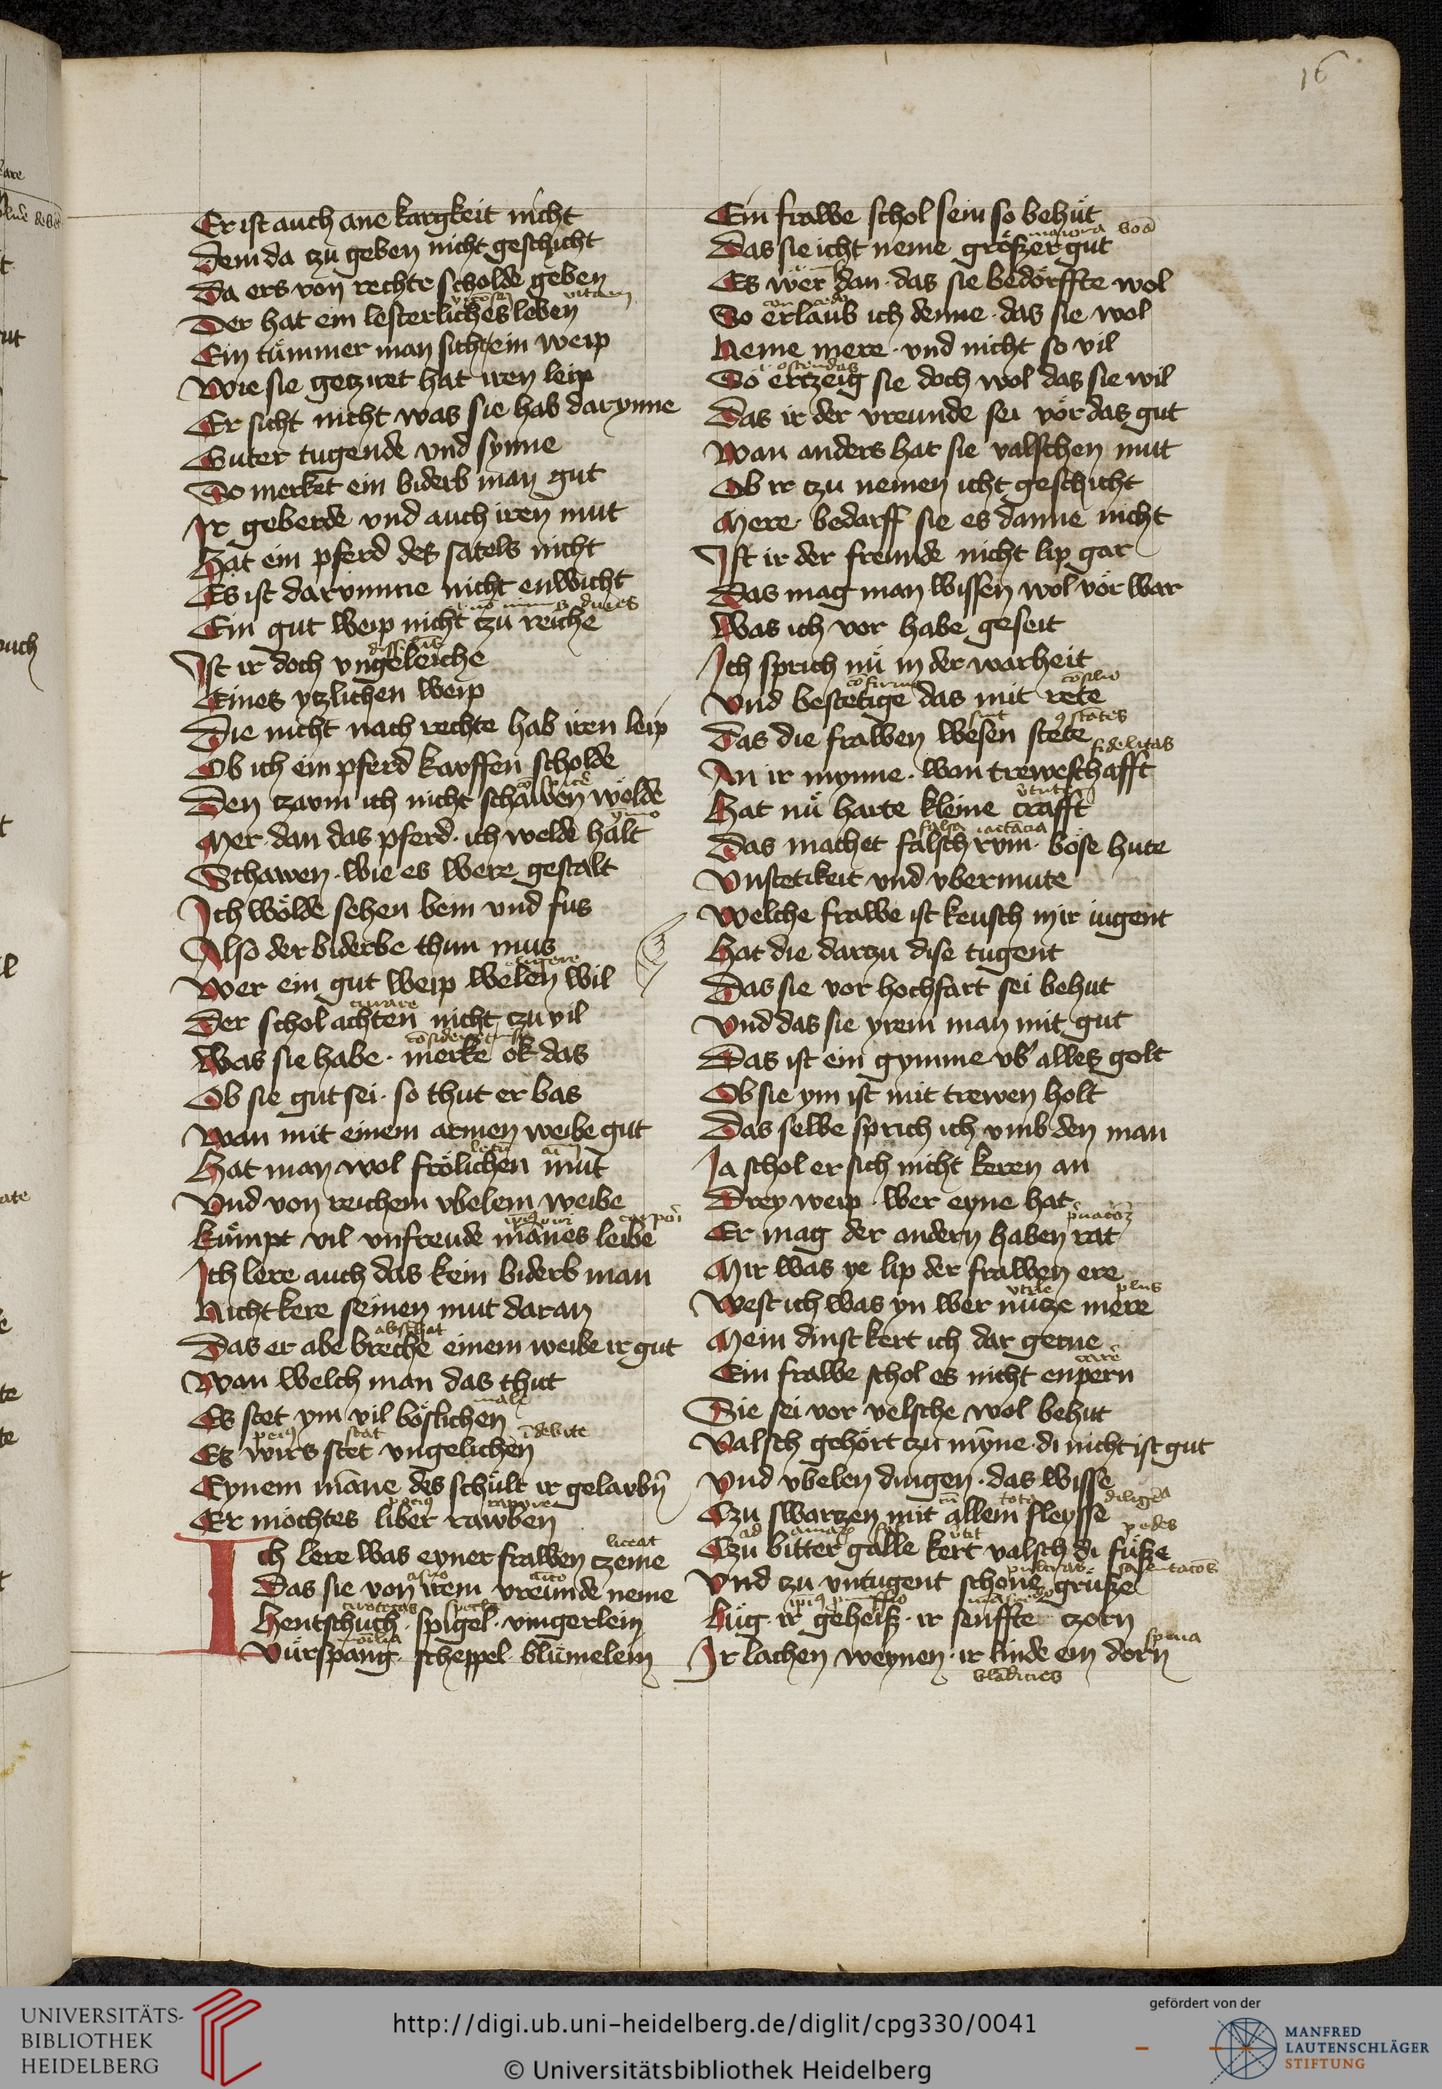 16
Er ist auch ane kargkeit nicht
Dem da czu geben nicht geschicht
Da ers von rechte scholde geben
Der hat ein lesterliches leben
Ein tummer man sicht ein weip
Wie sie gecziret hat iren leip
Er sicht nicht was sie hab darynne
Guter tugende vnd synne
So merket ein biderb man gut
Ir geberde vnd auch iren mut
Hat ein pferd des satels nicht
Es ist darumme nicht enwicht
Ein gut weip nicht czu reiche
Ist ir doch vngeleiche
Eines ytzlichen weip
Die nicht nach rechte hab iren leip
Ob ich ein pferd kaoffen scholde
Den czaum ich nicht schawen wölde
Mer dan das pferd · ich welde halt
Schawen · wie es were gestalt
Ich wölde sehen bein vnd fus
Also der biderbe thun mus
Wer ein gut weip welen wil
Der schol achten nicht czu vil
Was sie habe · merke ok das
Ob sie gut sei · so thut er bas
Wan mit einem armen weibe gut
Hat man wol frölichen mut
Vnd von reichem vbelem weibe
kumpt vil vnfreude mānes leibe
Ich lere auch das kein biderb man
Nicht kere seinen mut daran
Das er abe breche einem weibe ir gut
Wan welch man das thut
Es stet ym vil böslichen
Es wirs stet vngelichen
Eynem māne des schult ir gelaubn̄
Er möchtes liber rawben
Ich lere was eyner frawen czeme
Das sie von irem vreunde neme
Hentschuch · spigel · vingerlein
Vürspang · scheppel · blumelein
Ein frawe schol sein so behut
Das sie icht neme größzer gut
Es wer dan · das sie bedörffte wol
So erlaub ich denne · das sie wol
Neme mere · vnd nicht so vil
So ertzeig sie doch wol das sie wil
Das ir der vreunde sei vör das gut
Wan anders hat sie valschen mut
Ob ir czu nemen icht geschicht
Mere · bedarff sie es danne nicht
Ist ir der freunde nicht lip gar
Das mag man wissen wol vör war
Was ich vor habe geseit
Ich sprich nu in der warheit
Vnd bestetige das mit rete
Das die frawen wesen stete
An ir mynne · wan treweschafft
Hat nu harte kleine crafft
Das machet falsch rum · böse hute
Vnstetikeit vnd vbermute
Welche frawe ist keusch mir iugent
Hat die darzu dise tugent
Das sie vor hochfart sei behut
Vnd das sie yrem man mit gut
Das ist ein gymme vb' alles golt
Ob sie ym ist mit trewen holt
Das selbe sprich ich vmb den man
Ja schol er sich nicht keren an
Drey weip · wer eyne hat
Er mag der andern haben rat
Mir was ye lip der frawen ere
West ich was yn wer nutze mere
Mein dinst kert ich dar gerne
Ein frawe schol es nicht enpern
Sie sei vor velsche wol behut
Valsch gehört czu mȳne · di nicht ist gut
Vnd vbelen dingen · das wisse
Czu swarzen mit allem fleysse
Czu bitter galle kert valsch di füße
Vnd czu vntugent schone grüße
Lüg · ir geheiß · ir senffte czorn
Ir lachen weynen · ir linde ein dorn
UNIVERSITÄTS-
BIBLIOTHEK
HEIDELBERG
http://digi.ub.uni-heidelberg.de/diglit/cpg330/0041
© Universitätsbibliothek Heidelberg
gefördert von der
MANFRED
LAUTENSCHLÄGER
STIFTUNG